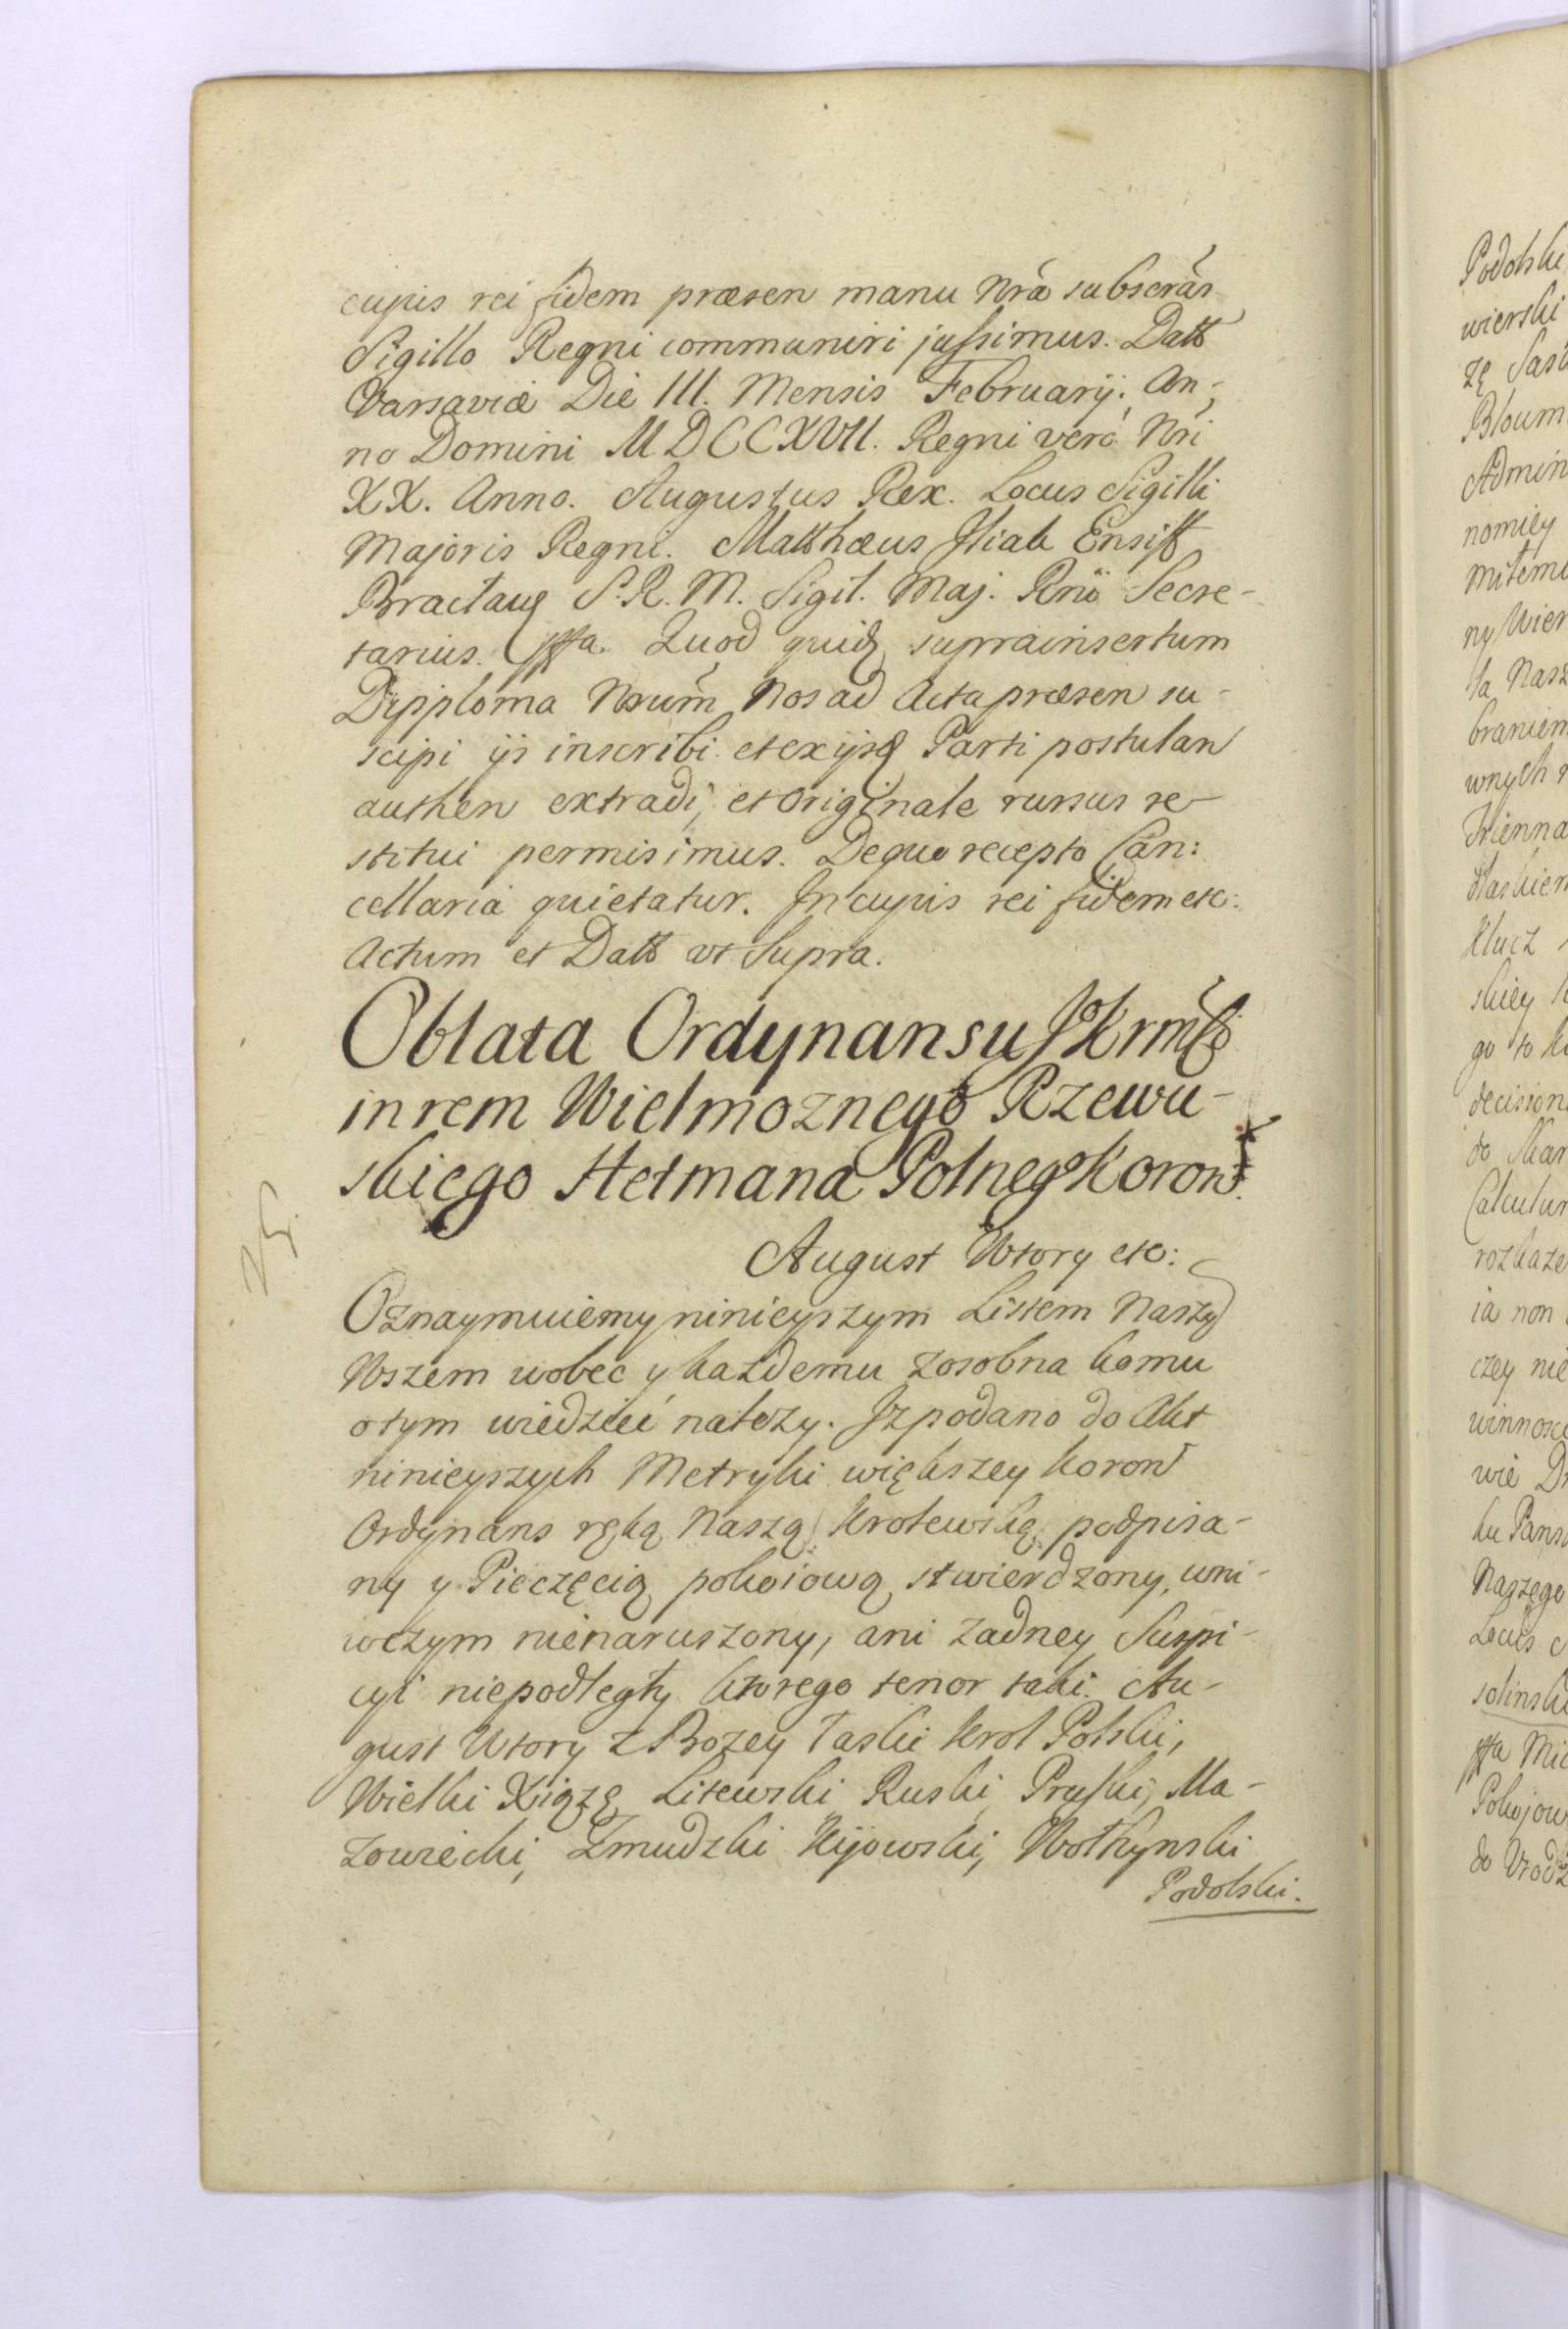 cujus rei fidem præsen manu Nrã subscrãs
Sigillo Regni communiri jussimus. Datt
Varsaviæ Die III. Mensis February. An-
no Domini MDCCXVII. Regni veró Nri
XX. Anno. Augustus Rex. Locus Sigilli
Majoris Regni. Matthæus Ensiff
S. R. M. Sigil. Maj. Rni Secre-
tarius. Quod quid suprainsertum
Dyploma Nos ad Acta præsen su-
scipi ijs inscribi et ex ijsq Parti postulan
authen extradi, et Originale rursus re-
stitui permisimus. De quo recepto Can:
cellaria quietatur. In cujus rei fidem etc:
Actum et Datt ut Supra.
Oblata Ordynansu JKrmśi
in rem Wielmoznego Rzewu-
skiego Hetmana Polneg Koron.
August Wtory etc:
Oznaymuiemy ninieyszym Listem Naszy
Wszem wobec y kazdemu zosobna komu
otym wiedzieć nalezy. Jz podano do Akt
ninieyszych Metryki większey koron
Ordynans ręką Naszą Krolewską podpisa-
ny y Pieczęcią pokoiową stwierdzony, wni-
wczym nienaruszony, ani zadney Suspi-
cyi niepodległy ktorego tenor taki. Au-
gust Wtory z Bozey łaski Krol Polski,
Wielki Xiążę Litewski Ruski, Pruski, Ma-
zowiecki, Zmudzki Kijowski, Wołhynski
Podolski.
Podolski
wierski
zę Sas
Bloum
Admin
nomiey
miłem
ny Wier
la Nasz
braniem
wnych
klucz
skiey
go to
decision
do Skar
Calculu
rozkaze
ia non
czey nie
winnosc
wie
ku Pans
Naszego
Locus
solinsk
Pokojow
do Vrodz